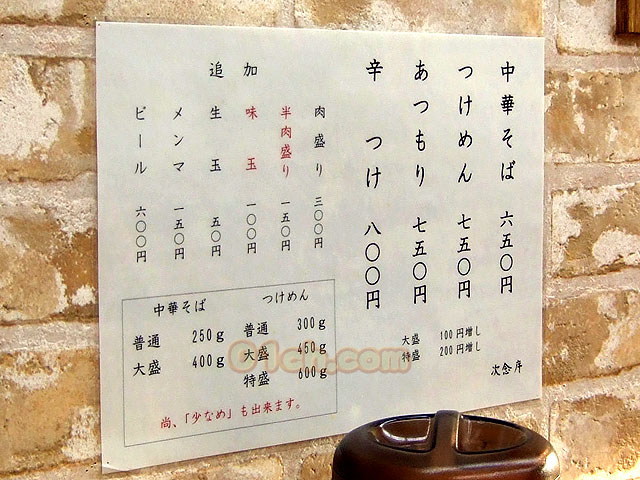 中華そば 六五〇円
つけめん 七五〇円
あつもり 七五〇円
辛つけ 八〇〇円
大盛 100円増し
特盛 200円増し
次念序
追加
肉盛り 三〇〇円
半肉盛り 一五〇円
味玉 一〇〇円
生玉 五〇円
メンマ 一五〇円
ビール 六〇〇円
中華そば
普通 250g
大盛 400g
つけめん
普通 300g
大盛 450g
特盛 600g
尚、「少なめ」も出来ます。